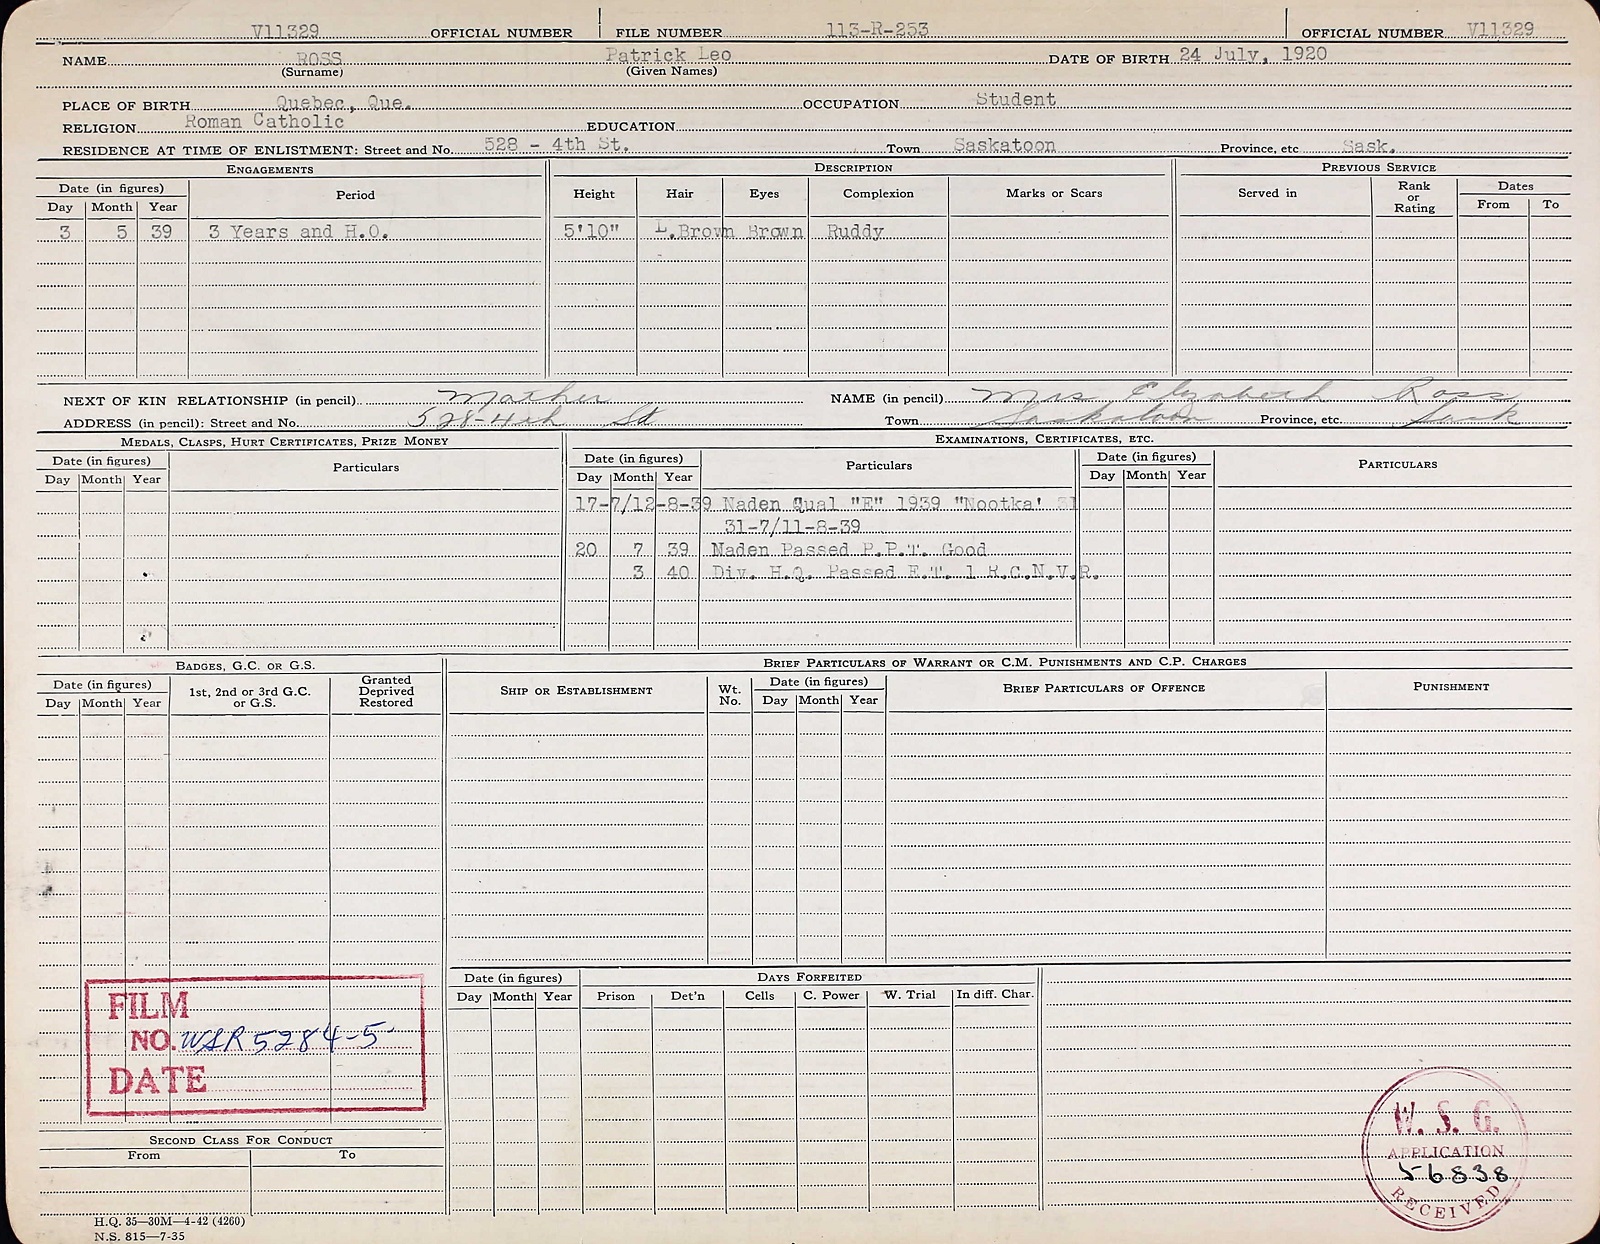 V11329 OFFICIAL NUMBER FILE NUMBER 113-R-253 OFFICIAL NUMBER V11329
NAME ROSS Patrick Leo DATE OF BIRTH 24 July, 1920
(Surname) (Given Names)
PLACE OF BIRTH Quebec, Que. OCCUPATION Student
RELIGION Roman Catholic EDUCATION
RESIDENCE AT TIME OF ENLISTMENT: Street and No. 528 - 4th St. Town Saskatoon Province, etc Sask.
ENGAGEMENTS DESCRIPTION PREVIOUS SERVICE
Date (in figures) Period Height Hair Eyes Complexion Marks or Scars Served in Rank or Rating Dates
Day Month Year From To
3 5 39 3 Years and H.O. 5'10" L.Brown Brown Ruddy
NEXT OF KIN RELATIONSHIP (in pencil) Mother NAME (in pencil) Mrs Elizabeth Ross
ADDRESS (in pencil): Street and No. 528-4th St Town Saskatoon Province, etc. Sask
MEDALS, CLASPS, HURT CERTIFICATES, PRIZE MONEY EXAMINATIONS, CERTIFICATES, ETC.
Date (in figures) Particulars Date (in figures) Particulars Date (in figures) PARTICULARS
Day Month Year Day Month Year Day Month Year
17-7/12-8-39 Naden Qual "E" 1939 "Nootka' 31
31-7/11-8-39
20 7 39 Naden Passed P.P.T. Good
3 40 Div. H.Q. Passed E.T. 1 R.C.N.V.R.
BADGES, G.C. OR G.S. BRIEF PARTICULARS OF WARRANT OR C.M. PUNISHMENTS AND C.P. CHARGES
Date (in figures) 1st, 2nd or 3rd G.C. or G.S. Granted Deprived Restored SHIP OR ESTABLISHMENT Wt. No. Date (in figures) BRIEF PARTICULARS OF OFFENCE PUNISHMENT
Day Month Year Day Month Year
Date (in figures) DAYS FORFEITED
Day Month Year Prison Det'n Cells C. Power W. Trial In diff. Char.
FILM
NO. WSR 5284-5
DATE
SECOND CLASS FOR CONDUCT
From To
W. S. G.
APPLICATION
56838
RECEIVED
H.Q. 35—30M—4-42 (4260)
N.S. 815—7-35